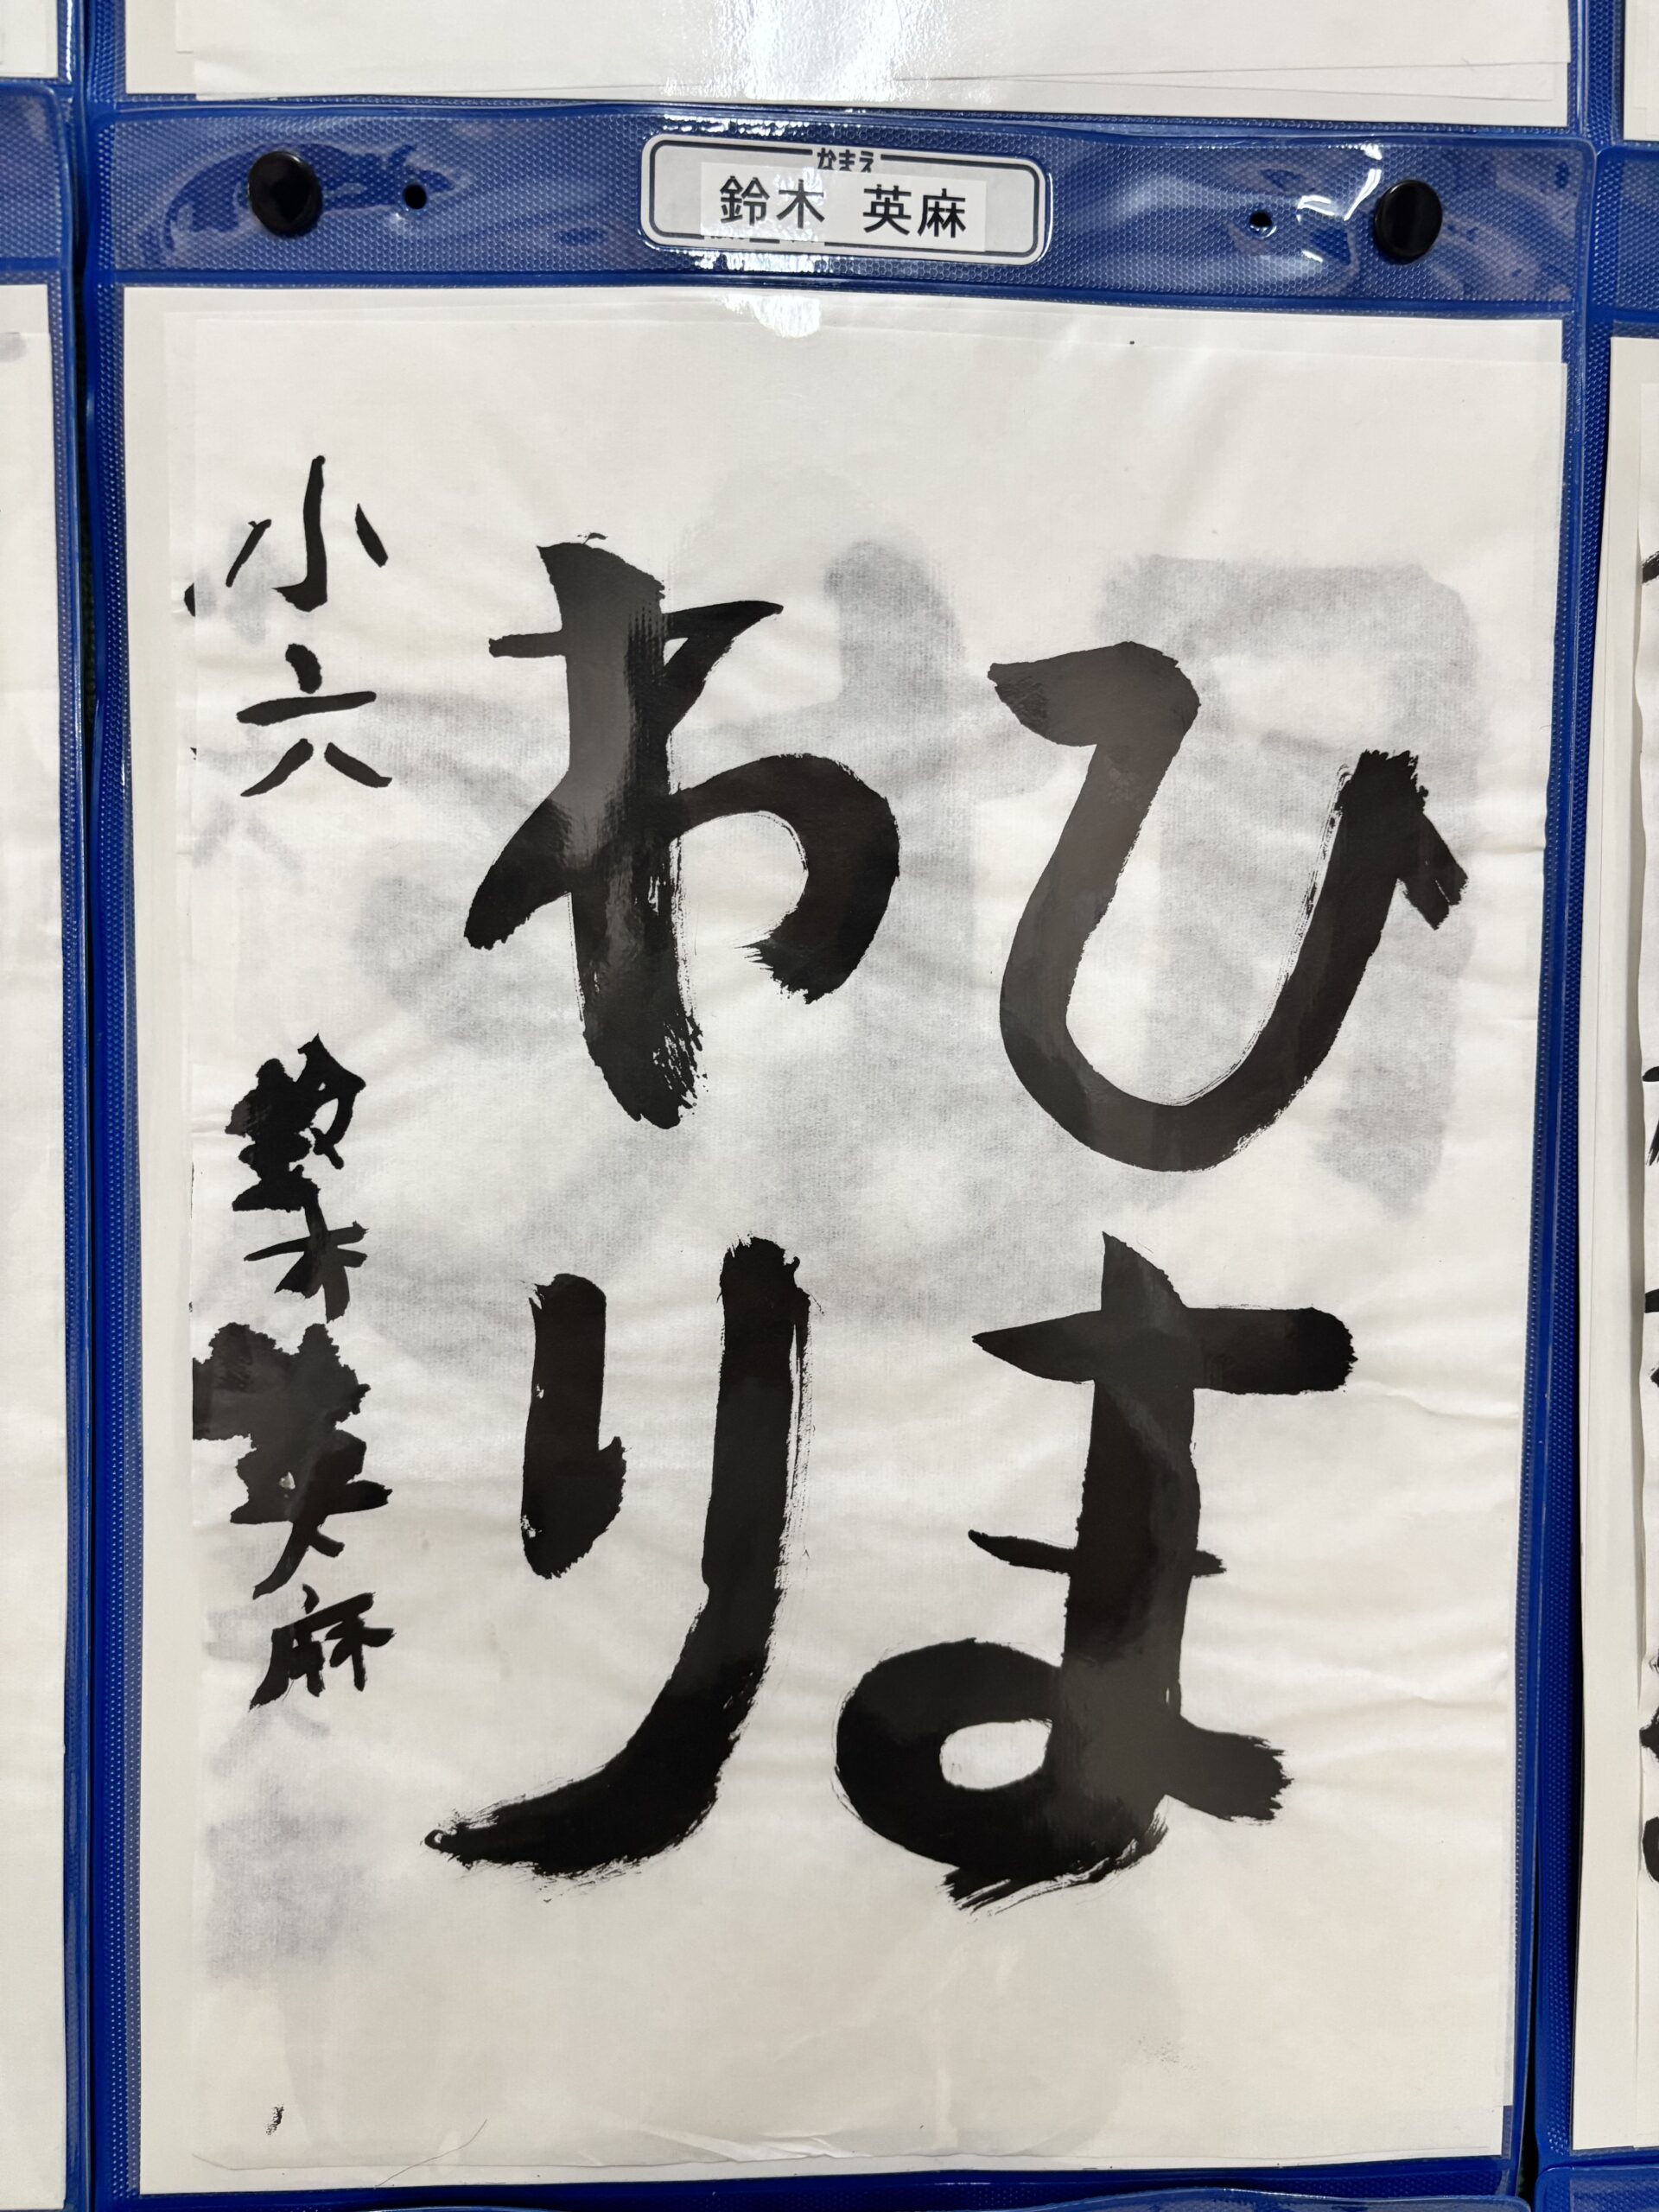 なまえ
鈴木 英麻
ひま
わり
小六 鈴木英麻